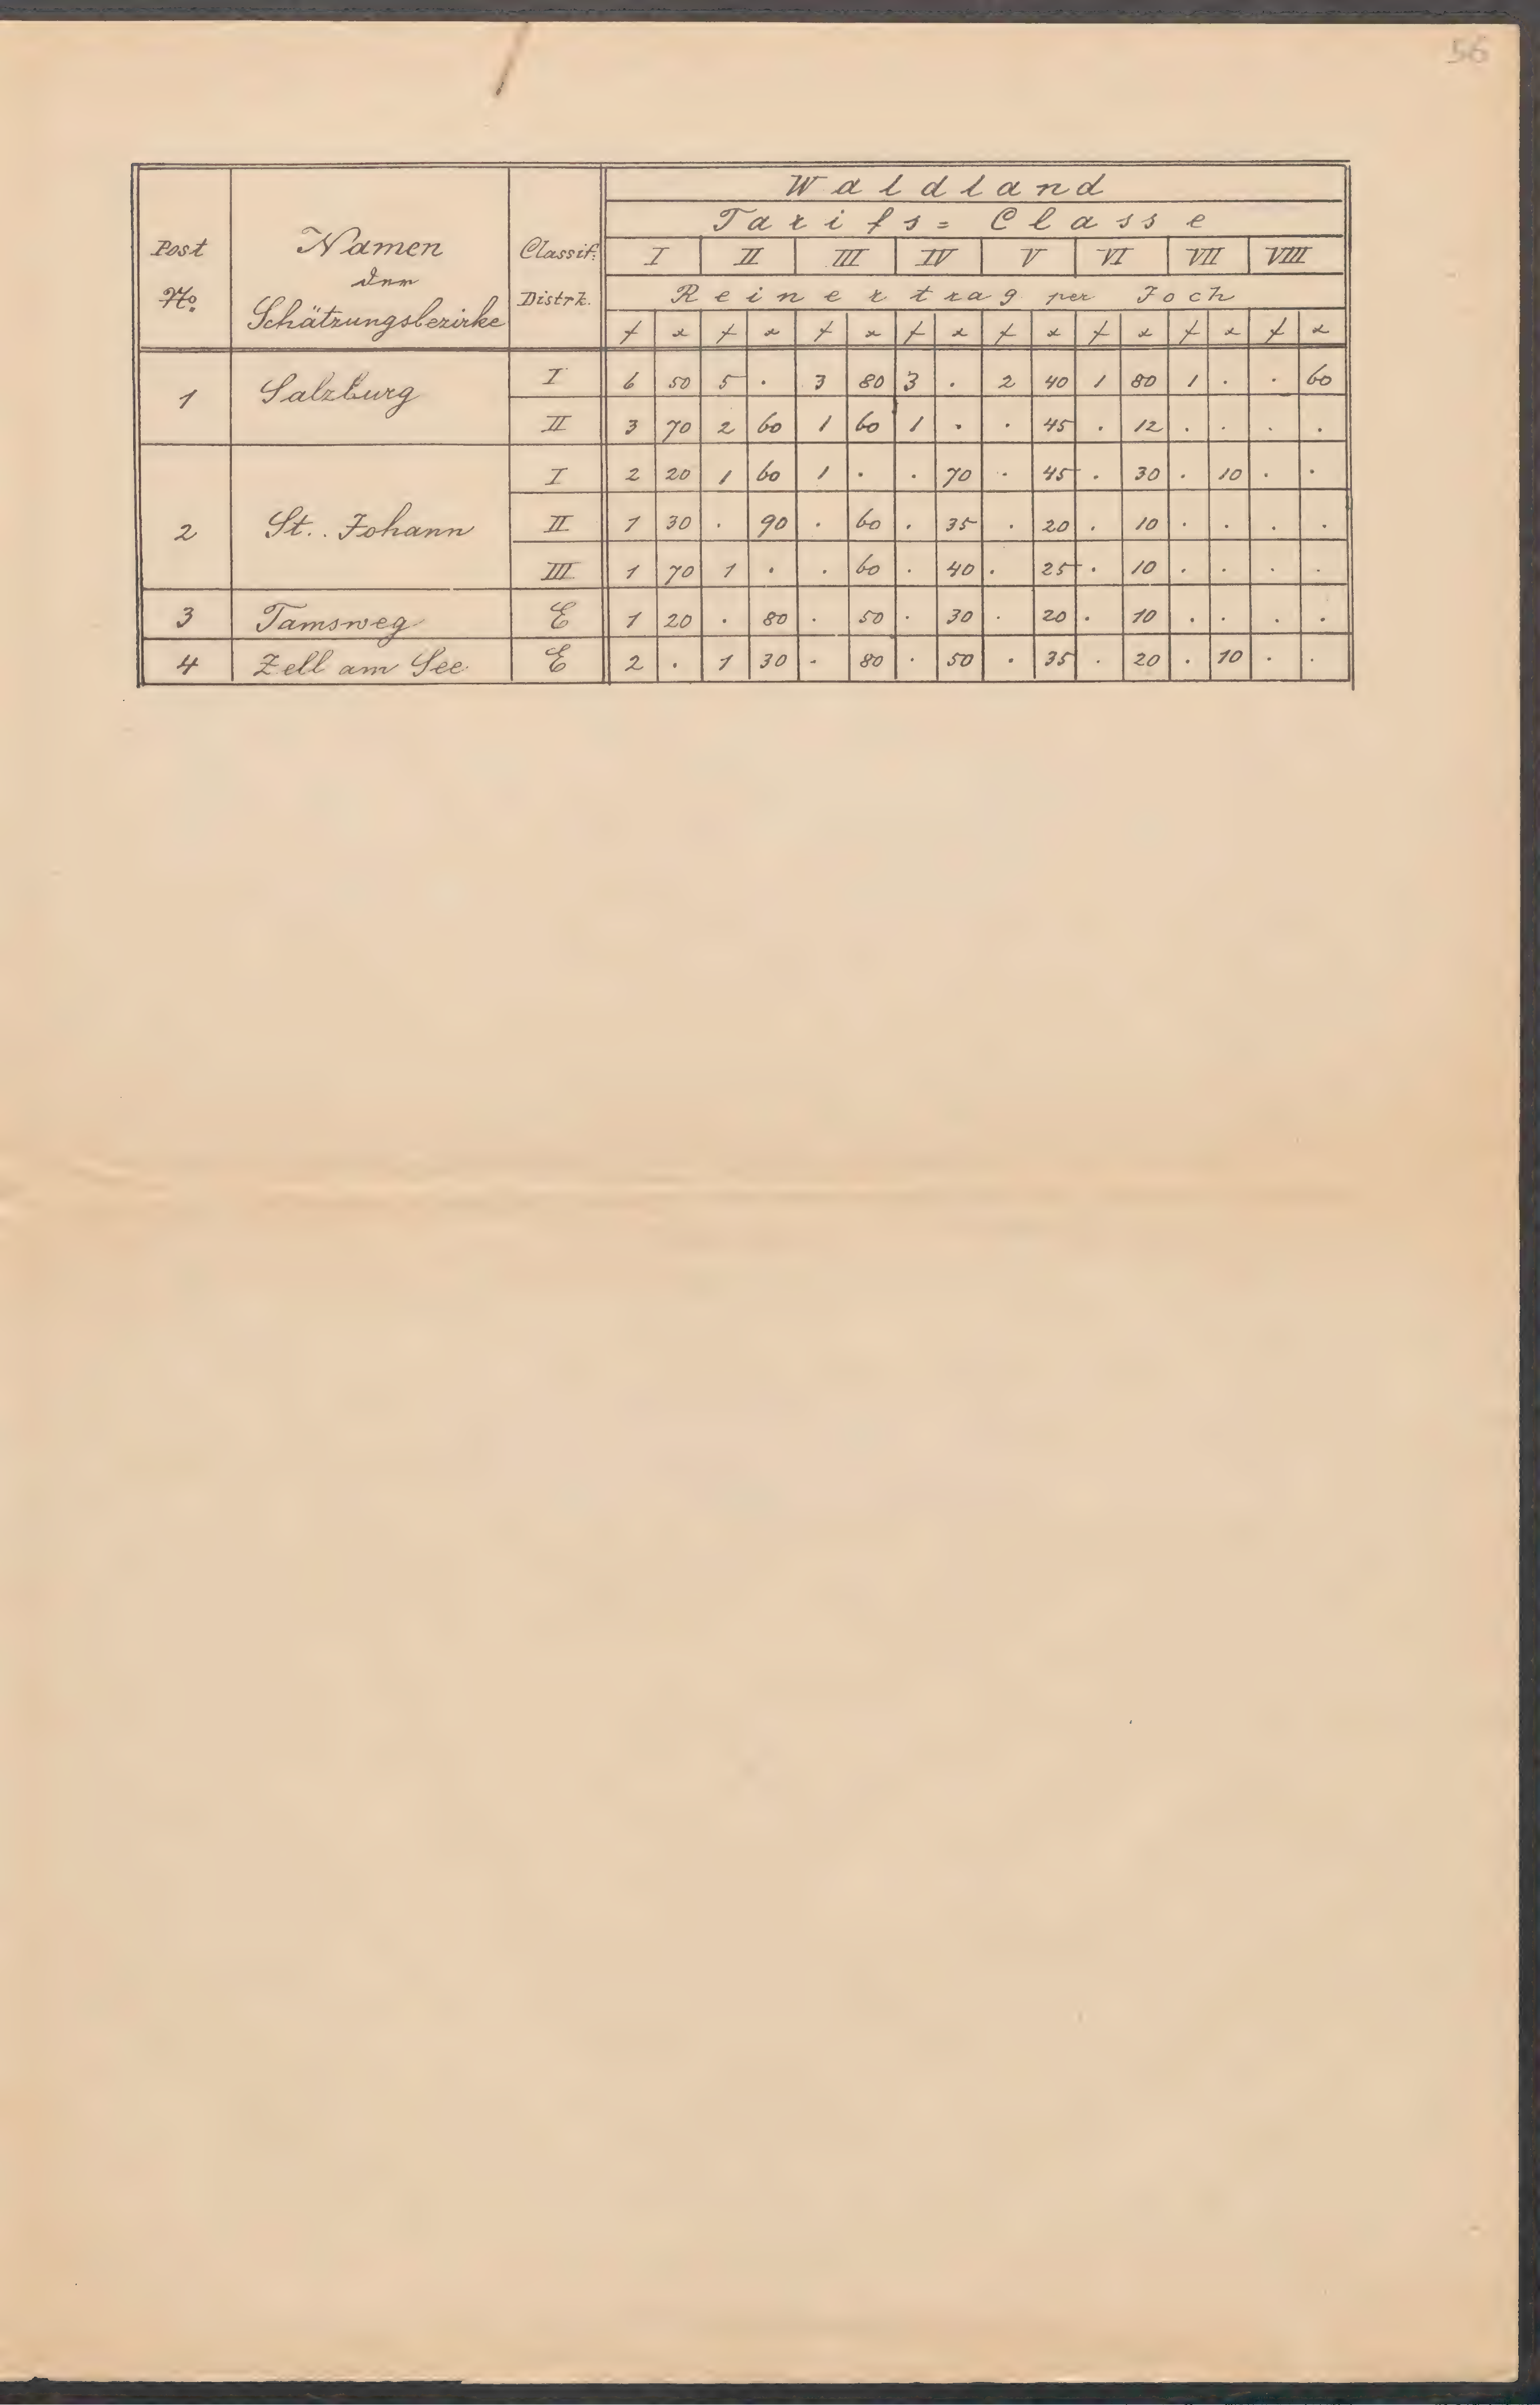 56
Waldland
Tarifs=Classe
Post No. Namen der Schätzungsbezirke Classif. Distrk. I II III IV V VI VII VIII
Reinertrag per Joch
f x f x f x f x f x f x f x f x
1 Salzburg I 6 50 5 . 3 80 3 . 2 40 1 80 1 . . 60
II 3 70 2 60 1 60 1 . . 45 . 12 . . . .
2 St. Johann I 2 20 1 60 1 . . 70 . 45 . 30 . 10 . .
II 1 30 . 90 . 60 . 35 . 20 . 10 . . . .
III 1 70 1 . . 60 . 40 . 25 . 10 . . . .
3 Tamsweg E 1 20 . 80 . 50 . 30 . 20 . 10 . . . .
4 Zell am See E 2 . 1 30 . 80 . 50 . 35 . 20 . 10 . .